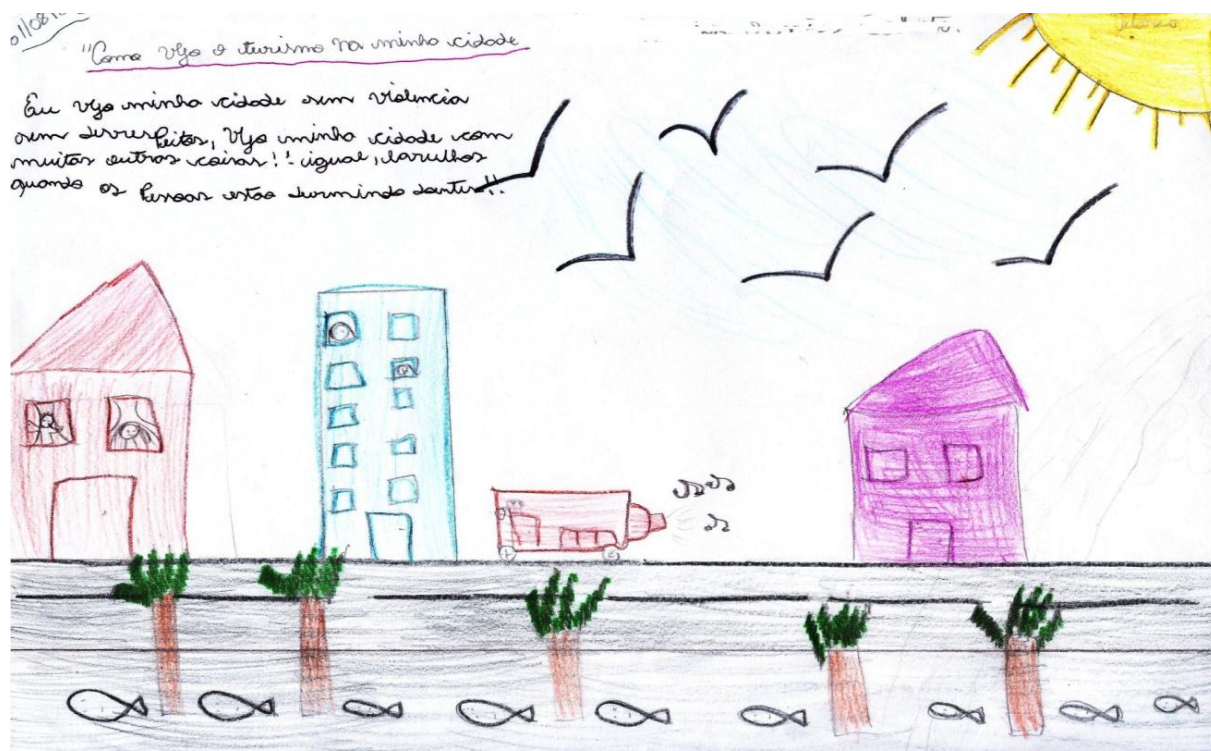 "Como Vejo o turismo na minha cidade
Eu vejo minha cidade sem violencia
sem desrespeitos, Vejo minha cidade com
muitas outras coisas!! igual, barulhos
quando as pessoas estao durmindo